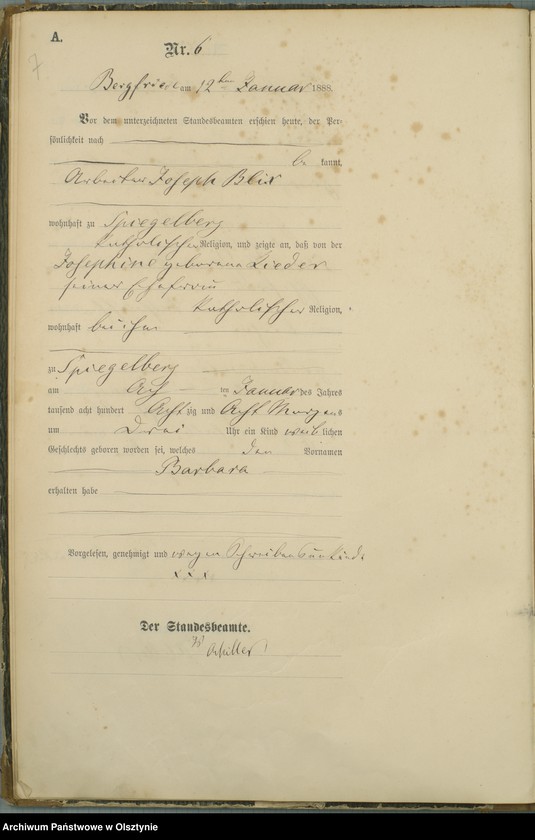 A.
7
Nr. 6
Bergfriede am 12ten Januar 1888.
Vor dem unterzeichneten Standesbeamten erschien heute, der Per-
sönlichkeit nach
be kannt,
Arbeiter Joseph Blix
wohnhaft zu Spiegelberg
katholischer Religion, und zeigte an, daß von der
Josephine geborene Lieder
seiner Ehefrau
katholischer Religion,
wohnhaft bei ihm
zu Spiegelberg
am Acht ten Januar des Jahres
tausend acht hundert Acht zig und Acht Morgens
um Drei Uhr ein Kind weib lichen
Geschlechts geboren worden sei, welches den Vornamen
Barbara
erhalten habe
Vorgelesen, genehmigt und wegen Schreibensunkunde
xxx
Der Standesbeamte.
Archiwum Państwowe w Olsztynie